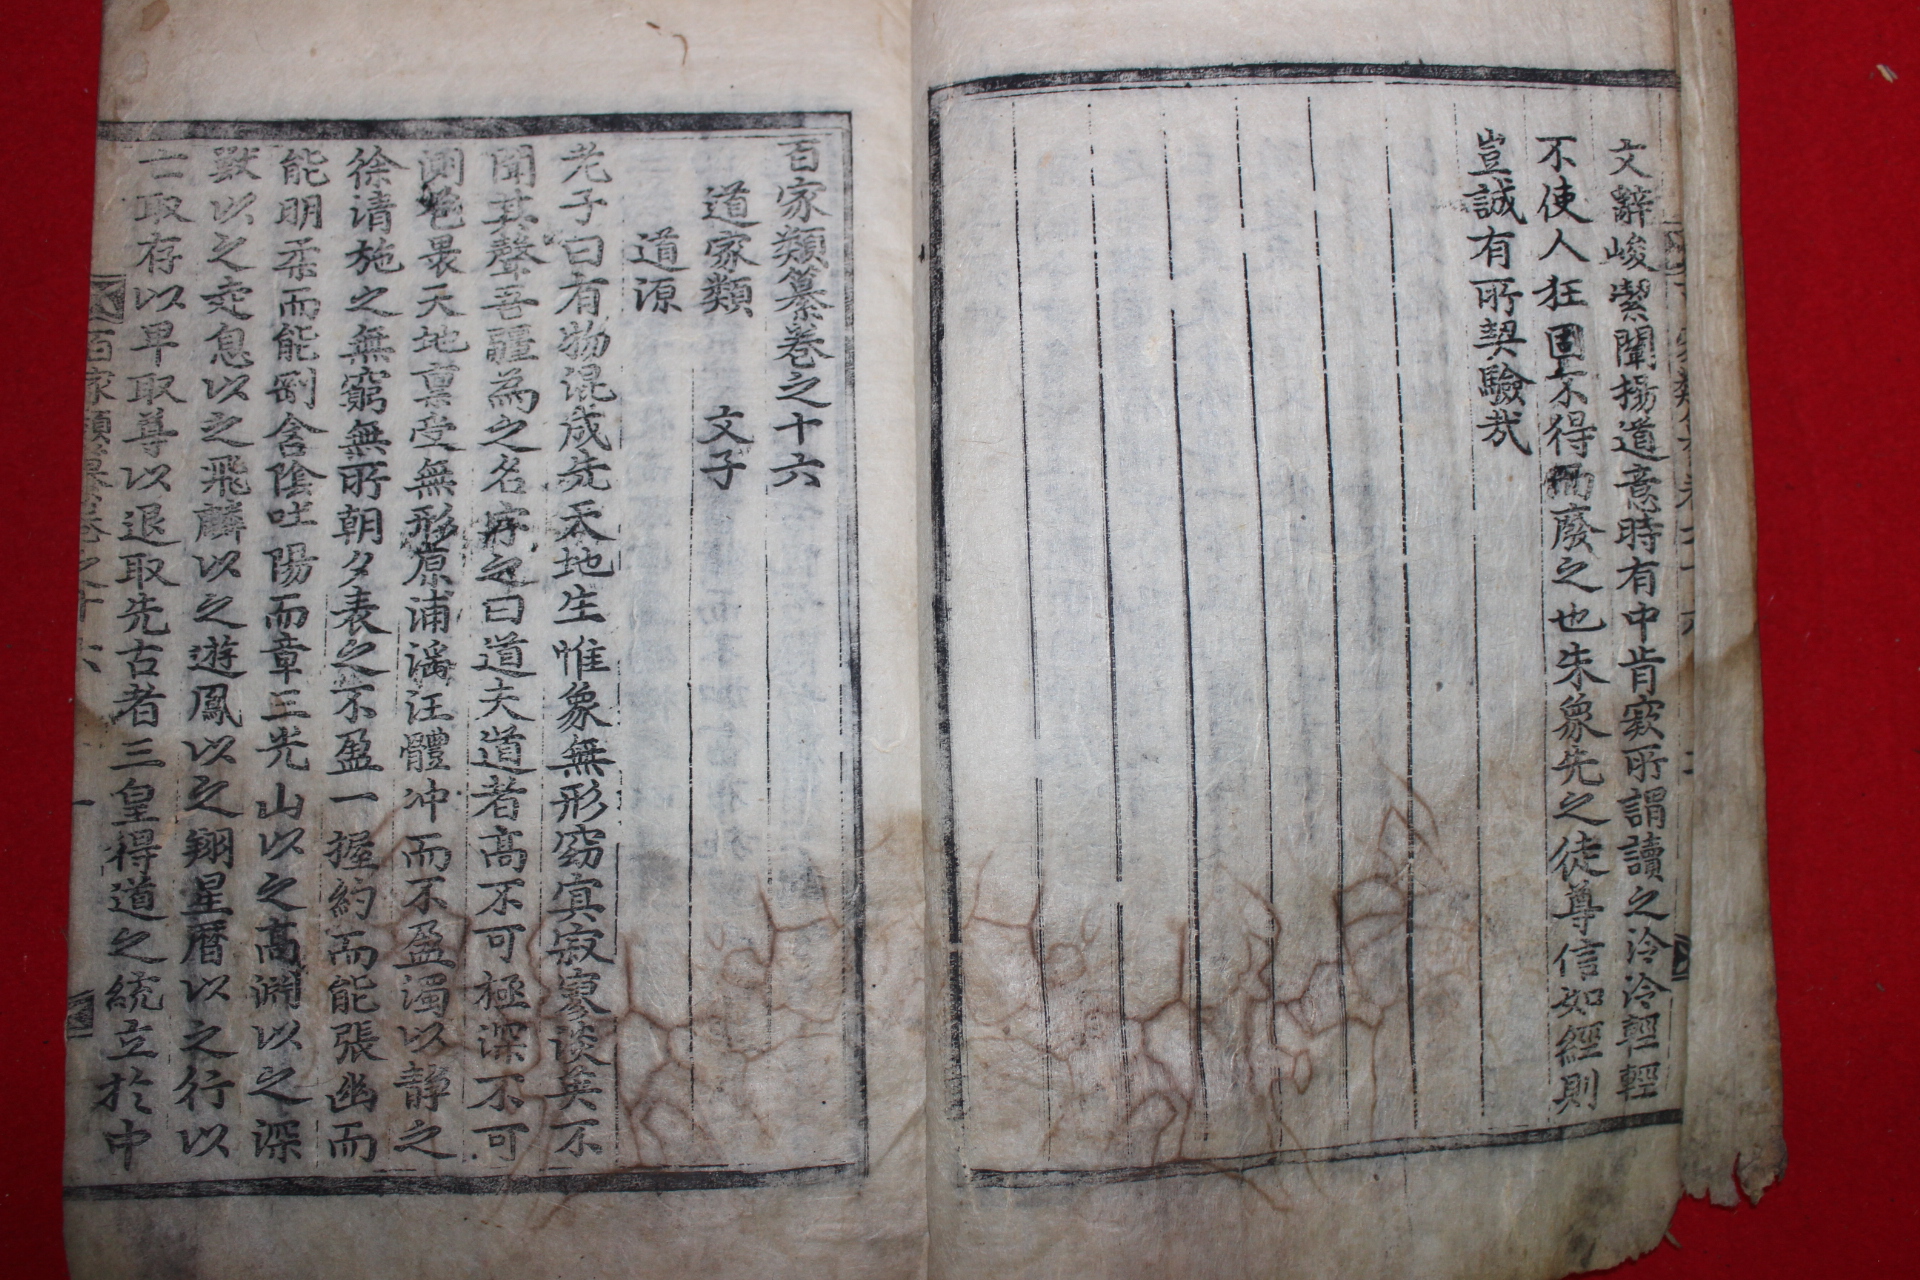 文辭峻潔闡揚道意時有中肯窾所謂讀之泠泠輕輕
不使人狂固不得而廢之也朱象先之徒尊信如經則
豈誠有所契驗哉
百家類纂卷之十六
道家類　文子
道源
老子曰有物混成先天地生惟象無形窈冥寂寥淡莫不
聞其聲吾彊為之名字之曰道夫道者高不可極深不可
測苞裹天地稟受無形原浦滛汪體冲而不盈濁以靜之
徐清施之無窮無所朝夕表之不盈一握約而能張幽而
能明柔而能剛含陰吐陽而章三光山以之高淵以之深
獸以之走息以之飛麟以之遊鳳以之翔星曆以之行以
亡取存以卑取尊以退取先古者三皇得道之統立於中
百家類纂卷之十六　一